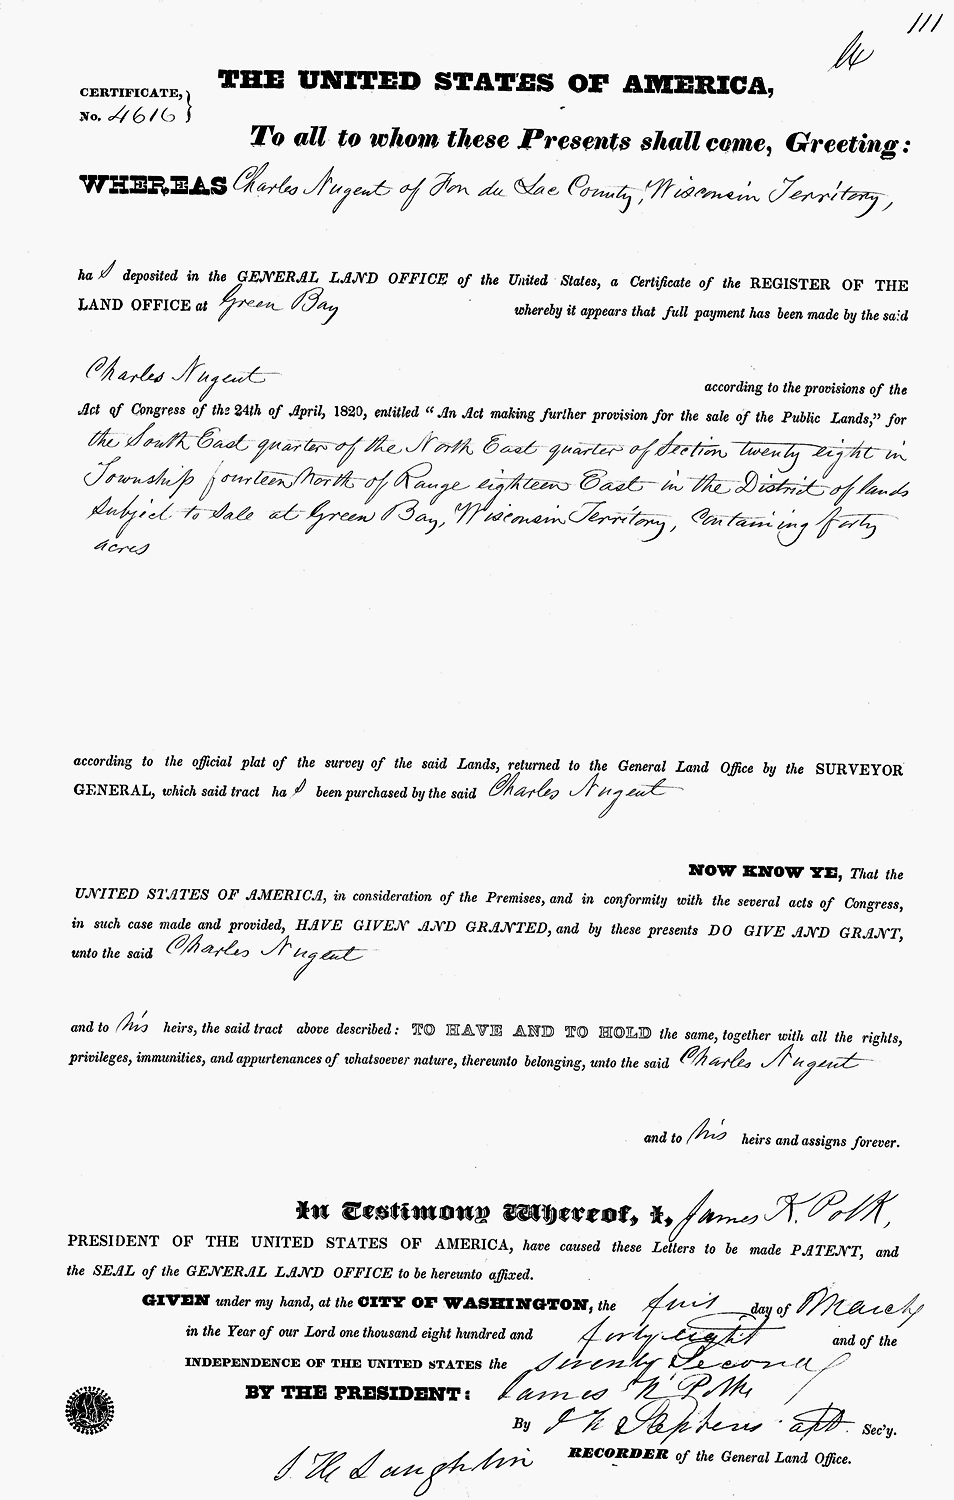 111
THE UNITED STATES OF AMERICA,
CERTIFICATE,
No. 4616
To all to whom these Presents shall come, Greeting:
WHEREAS Charles Nugent of Fon du Lac County, Wisconsin Territory,
ha s deposited in the GENERAL LAND OFFICE of the United States, a Certificate of the REGISTER OF THE
LAND OFFICE at Green Bay whereby it appears that full payment has been made by the said
Charles Nugent according to the provisions of the
Act of Congress of the 24th of April, 1820, entitled "An Act making further provision for the sale of the Public Lands," for
the South East quarter of the North East quarter of Section twenty eight in
Township fourteen North of Range eighteen East in the District of lands
subject to sale at Green Bay, Wisconsin Territory, containing forty
acres
according to the official plat of the survey of the said Lands, returned to the General Land Office by the SURVEYOR
GENERAL, which said tract ha s been purchased by the said Charles Nugent
NOW KNOW YE, That the
UNITED STATES OF AMERICA, in consideration of the Premises, and in conformity with the several acts of Congress,
in such case made and provided, HAVE GIVEN AND GRANTED, and by these presents DO GIVE AND GRANT,
unto the said Charles Nugent
and to his heirs, the said tract above described: TO HAVE AND TO HOLD the same, together with all the rights,
privileges, immunities, and appurtenances of whatsoever nature, thereunto belonging, unto the said Charles Nugent
and to his heirs and assigns forever.
In Testimony Whereof, I, James K. Polk,
PRESIDENT OF THE UNITED STATES OF AMERICA, have caused these Letters to be made PATENT, and
the SEAL of the GENERAL LAND OFFICE to be hereunto affixed.
GIVEN under my hand, at the CITY OF WASHINGTON, the first day of March
in the Year of our Lord one thousand eight hundred and forty eight and of the
INDEPENDENCE OF THE UNITED STATES the Seventy Second
BY THE PRESIDENT: James K Polk
By J K Stephens Sec'y.
S H Laughlin RECORDER of the General Land Office.